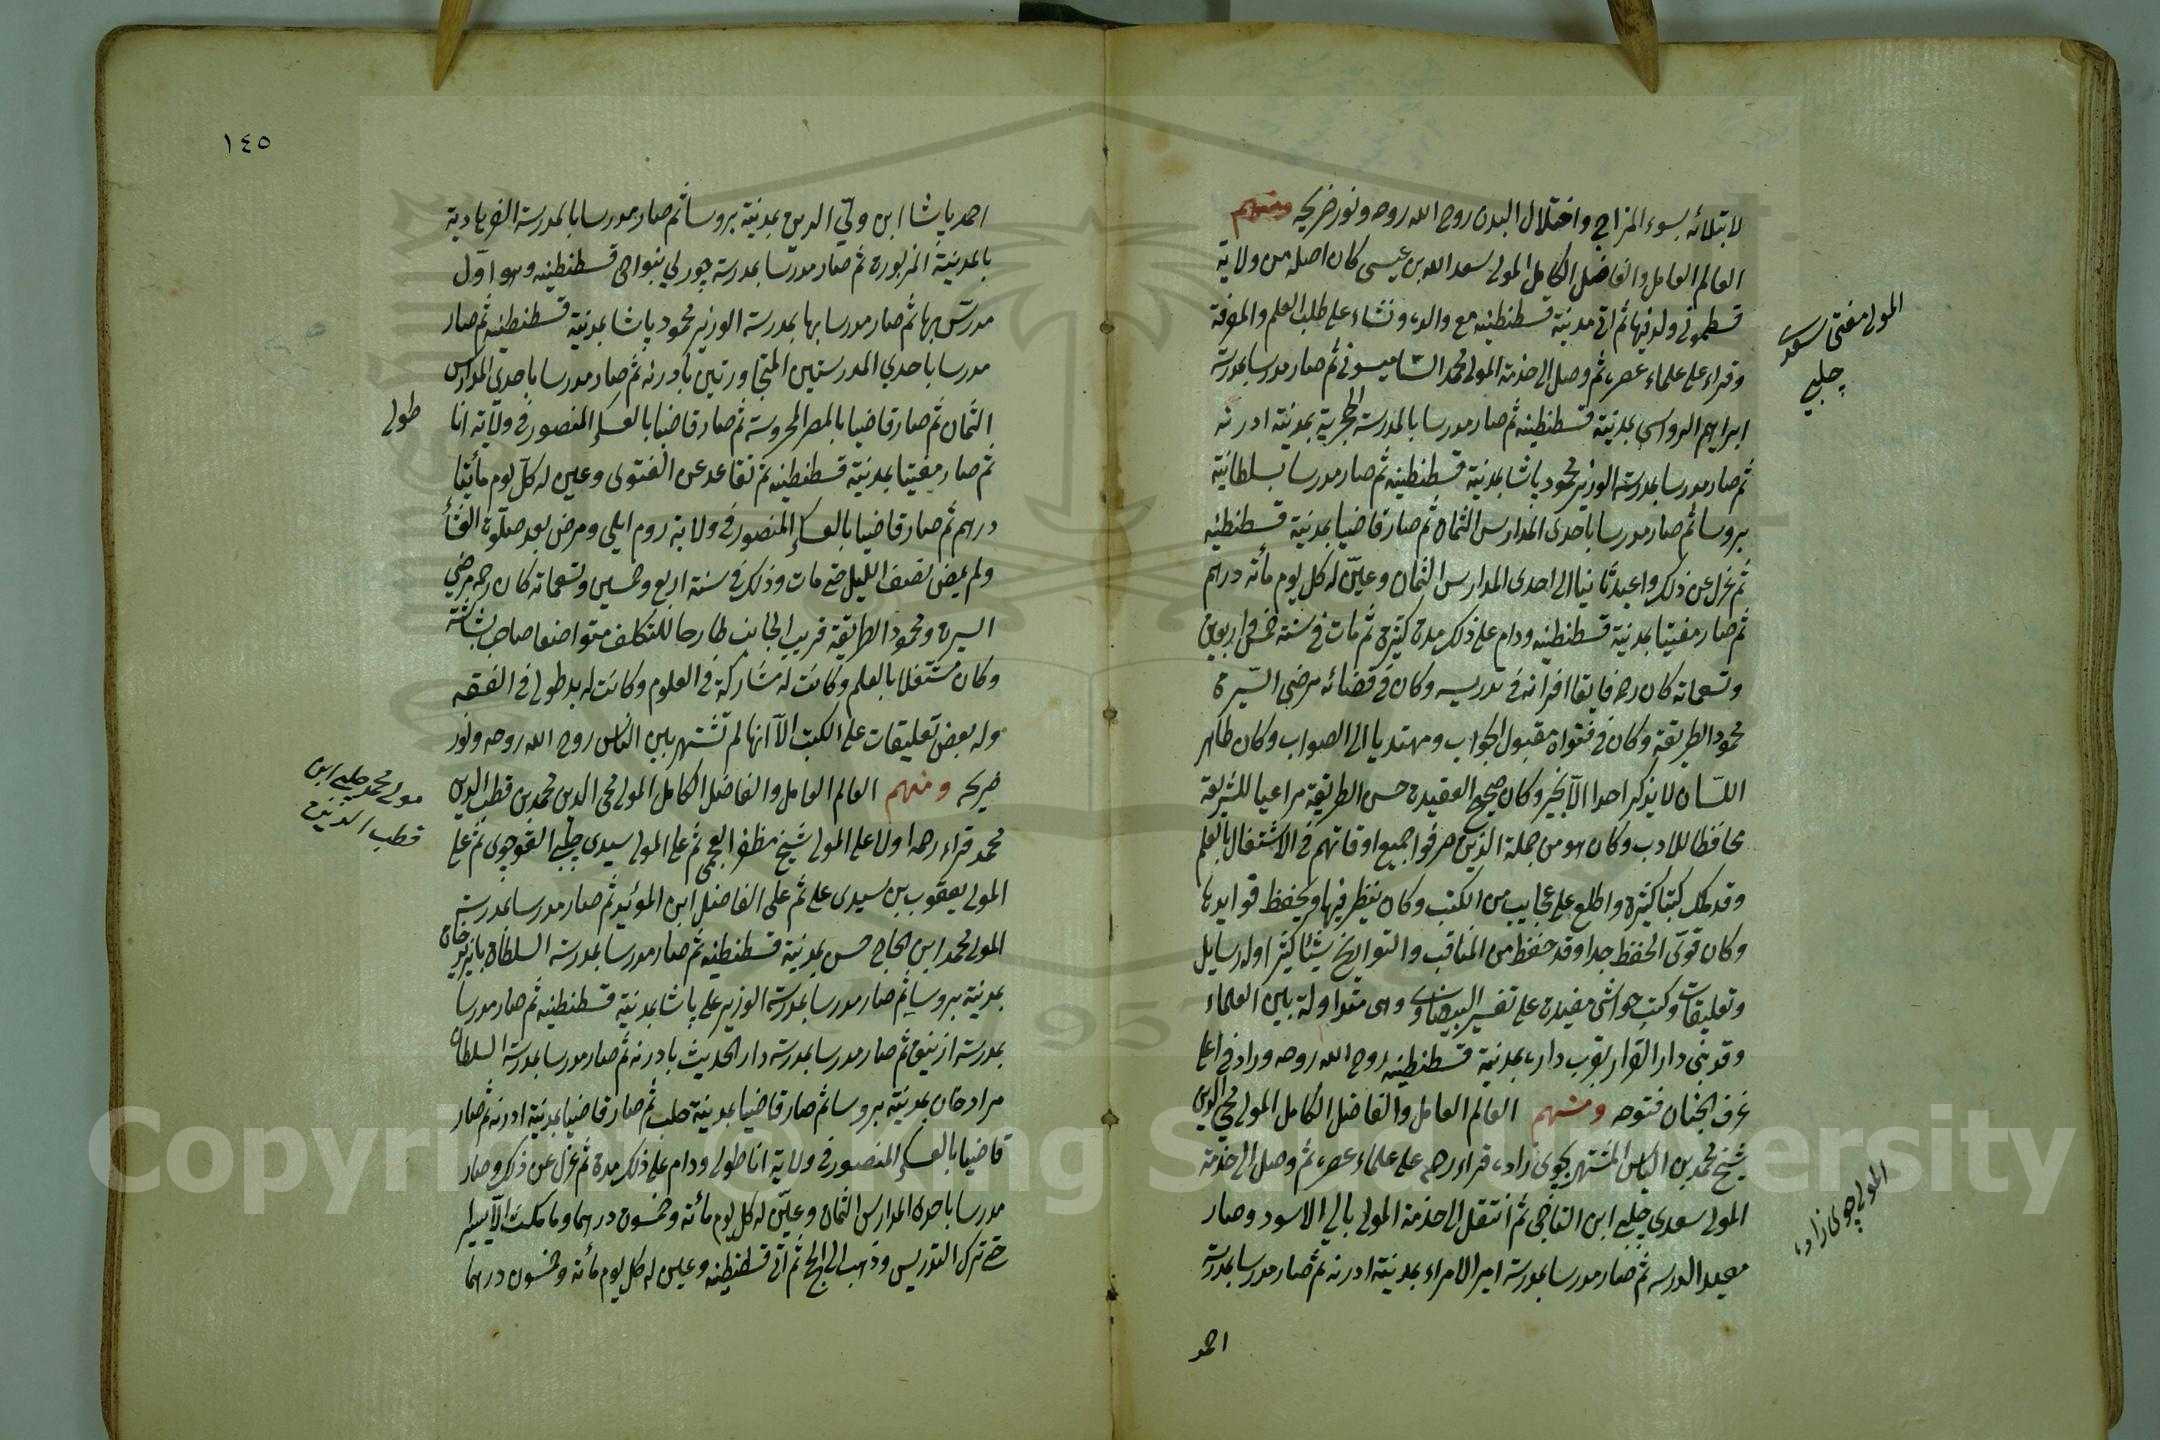 لابتلائه بسوء المزاج واختلال البدن روح الله روحه ونور ضريحه ومنهم
العالم العامل والفاضل الكامل المولى سعد الله بن عيسى كان اصله من ولاية
قسطموني ولد فيها ثم اتى مدينة قسطنطينه مع والده ونشاء على طلب العلم والمعرفة
وقراء على علماء عصره ثم وصل الى خدمة المولى محمد الساميسوني ثم صار مدرسا بمدرسة
ابراهيم الرواسي بمدينة قسطنطينه ثم صار مدرسا بالمدرسة الحجرية بمدينة ادرنه
ثم صار مدرسا بمدرسة الوزير محمود پاشا بمدينة قسطنطينه ثم صار مدرسا بسلطانية
بروسا ثم صار مدرسا باحدى المدارس الثمان ثم صار قاضيا بمدينة قسطنطينه
ثم عزل عن ذلك واعيد ثانيا الى احدى المدارس الثمان وعين له كل يوم مأة درهم
ثم صار مفتيا بمدينة قسطنطينه ودام على ذلك مدة كثيرة ثم مات في سنة خمس واربعين
وتسعمائه كان رحه فايقا اقرانه في تدريسه وكان في قضائه مرضى السيرة
محمود الطريقة وكان في فتواه مقبول الجواب ومهتديا الى الصواب وكان طاهر
اللسان لا يذكر احدا الا بخير وكان صحيح العقيدة حسن الطريقة مراعيا للشريعة
محافظا للادب وكان هو من جملة الذين صرفوا جميع اوقاتهم في الاشتغال بالعلم
وقد ملك كتبا كثيرة واطلع على عجايب من الكتب وكان ينظر فيها ويحفظ فوايدها
وكان قوى الحفظ جدا وقد حفظ من المناقب والتواريخ شيئا كثيرا وله رسايل
وتعليقات وكتب حواشى مفيدة على تفسير البيضاوى وهى متداولة بين العلماء
وقد بنى دار القرا بقرب داره بمدينة قسطنطينه روح الله روحه وزاد في اعلى
غرف الجنان فتوحه ومنهم العالم العامل والفاضل الكامل المولى محي الدين
شيخ محمد بن الياس المشتهر بجوى زاده قراء رحه على علماء عصره ثم وصل الى خدمة
المولى سعدي چلبي ابن التاجى ثم انتقل الى خدمة المولى بالي الاسود وصار
معيد الدرسه ثم صار مدرسا بمدرسة امير الامراء بمدينة ادرنه ثم صار مدرسا بمدرسة
احمد
المولى مفتى سعدى
چلبي
المولى چوى زاده
١٤٥
احمد پاشا ابن ولي الدين بمدينة بروسا ثم صار مدرسا بالمدرسة الفرهادية
بالمدينة المزبورة ثم صار مدرسا بمدرسة چورلي بنواحى قسطنطينه وهو اول
مدرس بها ثم صار مدرسا بها بمدرسة الوزير محمود پاشا بمدينة قسطنطينه ثم صار
مدرسا باحدي المدرستين المتجاورتين بأدرنه ثم صار مدرسا باحدي المدارس
الثمان ثم صار قاضيا بالمصر المحروسة ثم صار قاضيا بالعسكر المنصور في ولاية انا
طولى
ثم صار مفتيا بمدينة قسطنطينه ثم تقاعد عن الفتوى وعين له كل يوم مأتا
درهم ثم صار قاضيا بالعسكر المنصور في ولاية روم ايلى ومرض بعد صلوة العشأ
ولم يمض نصف الليل حتى مات وذلك في سنة اربع وخمسين وتسعمائه كان رحه مرضي
السيرة ومحمود الطريقة قريب الجانب طارحا للتكلف متواضعا صاحب بشاشة
وكان مشتغلا بالعلم وكانت له مشاركة في العلوم وكانت له يد طولى في الفقه
وله بعض تعليقات على الكتب الا انها لم تشتهر بين الناس روح الله روحه ونور
ضريحه ومنهم العالم العامل والفاضل الكامل المولى محى الدين محمد بن قطب الدين
محمد قراء رحه اولا على المولى شيخ مظفر العجمى ثم على المولى سيدى چلبي القوجوى ثم على
المولى يعقوب بن سيدى على ثم على الفاضل ابن المؤيد ثم صار مدرسا بمدرسة
المولى محمد ابن الحاج حسن بمدينة قسطنطينه ثم صار مدرسا بمدرسة السلطان بايزيد خان
بمدينة بروسا ثم صار مدرسا بمدرسة الوزير على پاشا بمدينة قسطنطينه ثم صار مدرسا
بمدرسة ازنيق ثم صار مدرسا بمدرسة دار الحديث بادرنه ثم صار مدرسا بمدرسة السلطان
مراد خان بمدينة بروسا ثم صار قاضيا بمدينة حلب ثم صار قاضيا بمدينة ادرنه ثم صار
قاضيا بالعسكر المنصور في ولاية اناطولى ودام على ذلك مدة ثم عزل عن ذلك وصار
مدرسا باحدى المدارس الثمان وعين له كل يوم مأئة وخمسون درهما وما مكث الا يسيرا
حتى ترك التدريس وذهب الى الحج ثم اتى قسطنطينه وعين له كل يوم مأئة وخمسون درهما
مولى محمد چلبي ابن
قطب الدين
Copyright © King Saud University